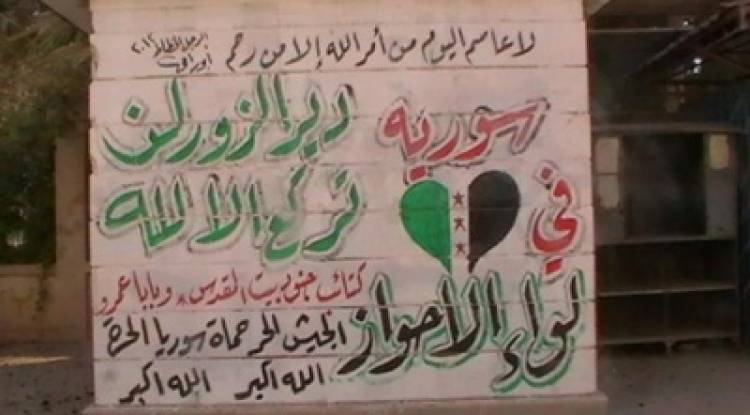 لا عاصم اليوم من أمر الله إلا من رحم
سورية
في
لواء الاحواز
دير الزور لن
تركع الا لله
كتائب جنود بيت القدس * وبابا عمرو
الجيش الحر حماة سوريا الحرة
الله اكبر الله اكبر